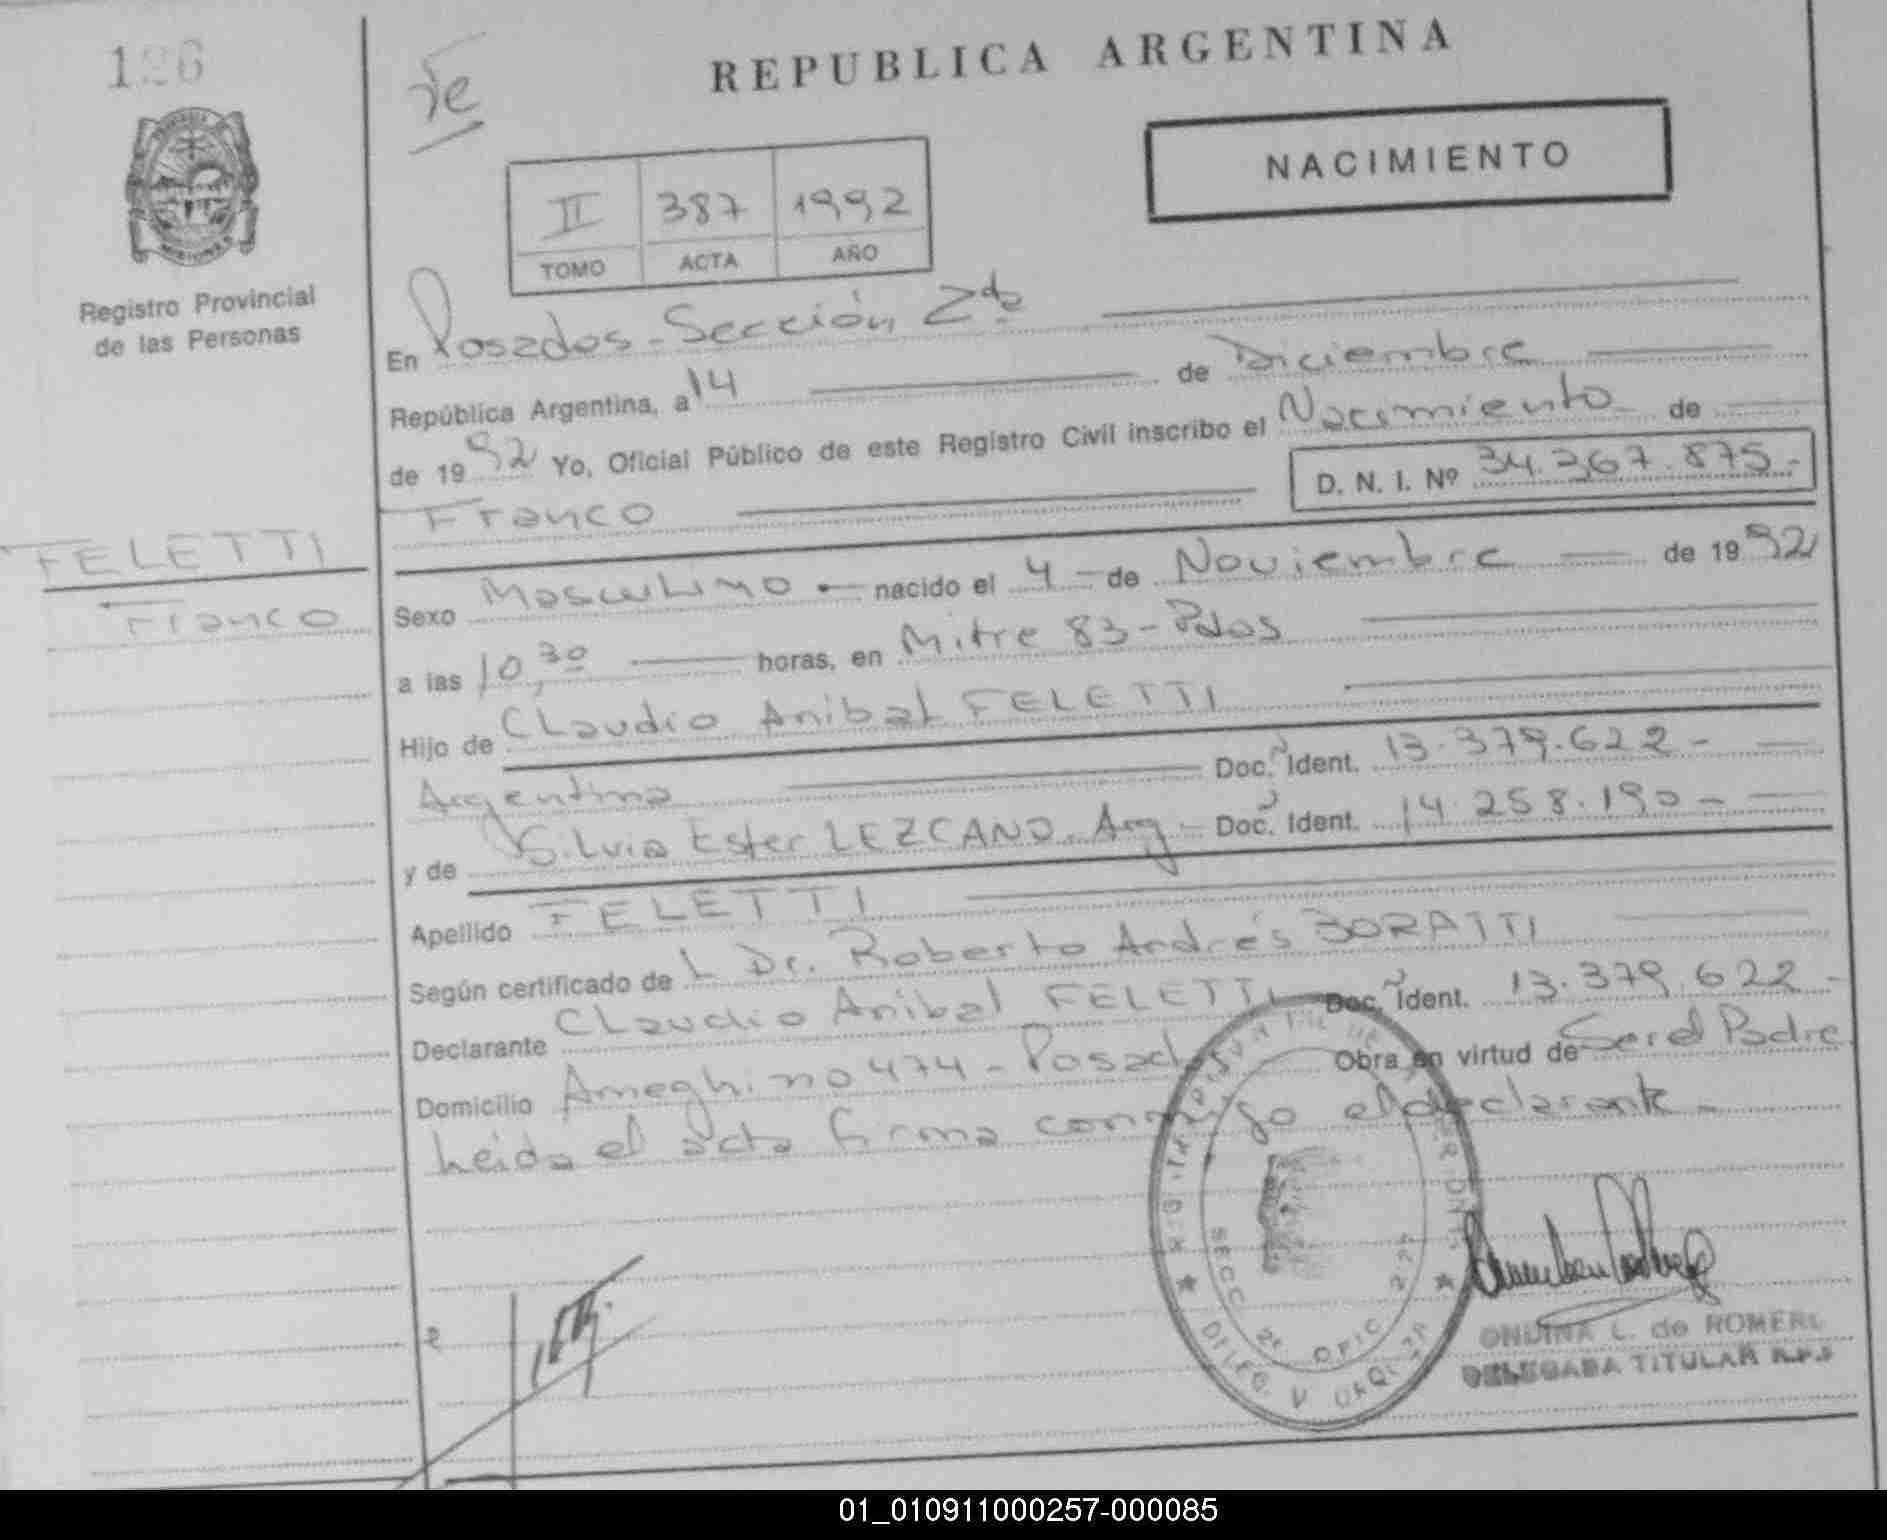 126
REPUBLICA ARGENTINA
NACIMIENTO
II 387 1992
TOMO ACTA AÑO
Registro Provincial
de las Personas
En Posadas - Sección 2da
República Argentina, a 14 de Diciembre
de 1992 Yo, Oficial Público de este Registro Civil inscribo el Nacimiento de
D. N. I. Nº 34.367.875.-
Franco
FELETTI
Franco
Sexo Masculino - nacido el 4 - de Noviembre de 1992
a las 10,30 horas, en Mitre 83 - Pdas
Hijo de Claudio Anibal FELETTI
Argentina Doc. Ident. 13.379.622 -
y de Silvia Ester LEZCANO. Arg - Doc. Ident. 14.258.190 -
Apellido FELETTI
Según certificado de L Dr. Roberto Andrés BORATTI
Declarante Claudio Anibal FELETTI Doc. Ident. 13.379.622 -
Domicilio Ameghino 474 - Posadas Obra en virtud de Ser el Padre
Leida el acta firma conmigo el declarante -
SECC 2ª OFIC 2224
DELEG. V URQUIZA
ONDINA L. de ROMERO
DELEGADA TITULAR R.P.P
01_010911000257-000085